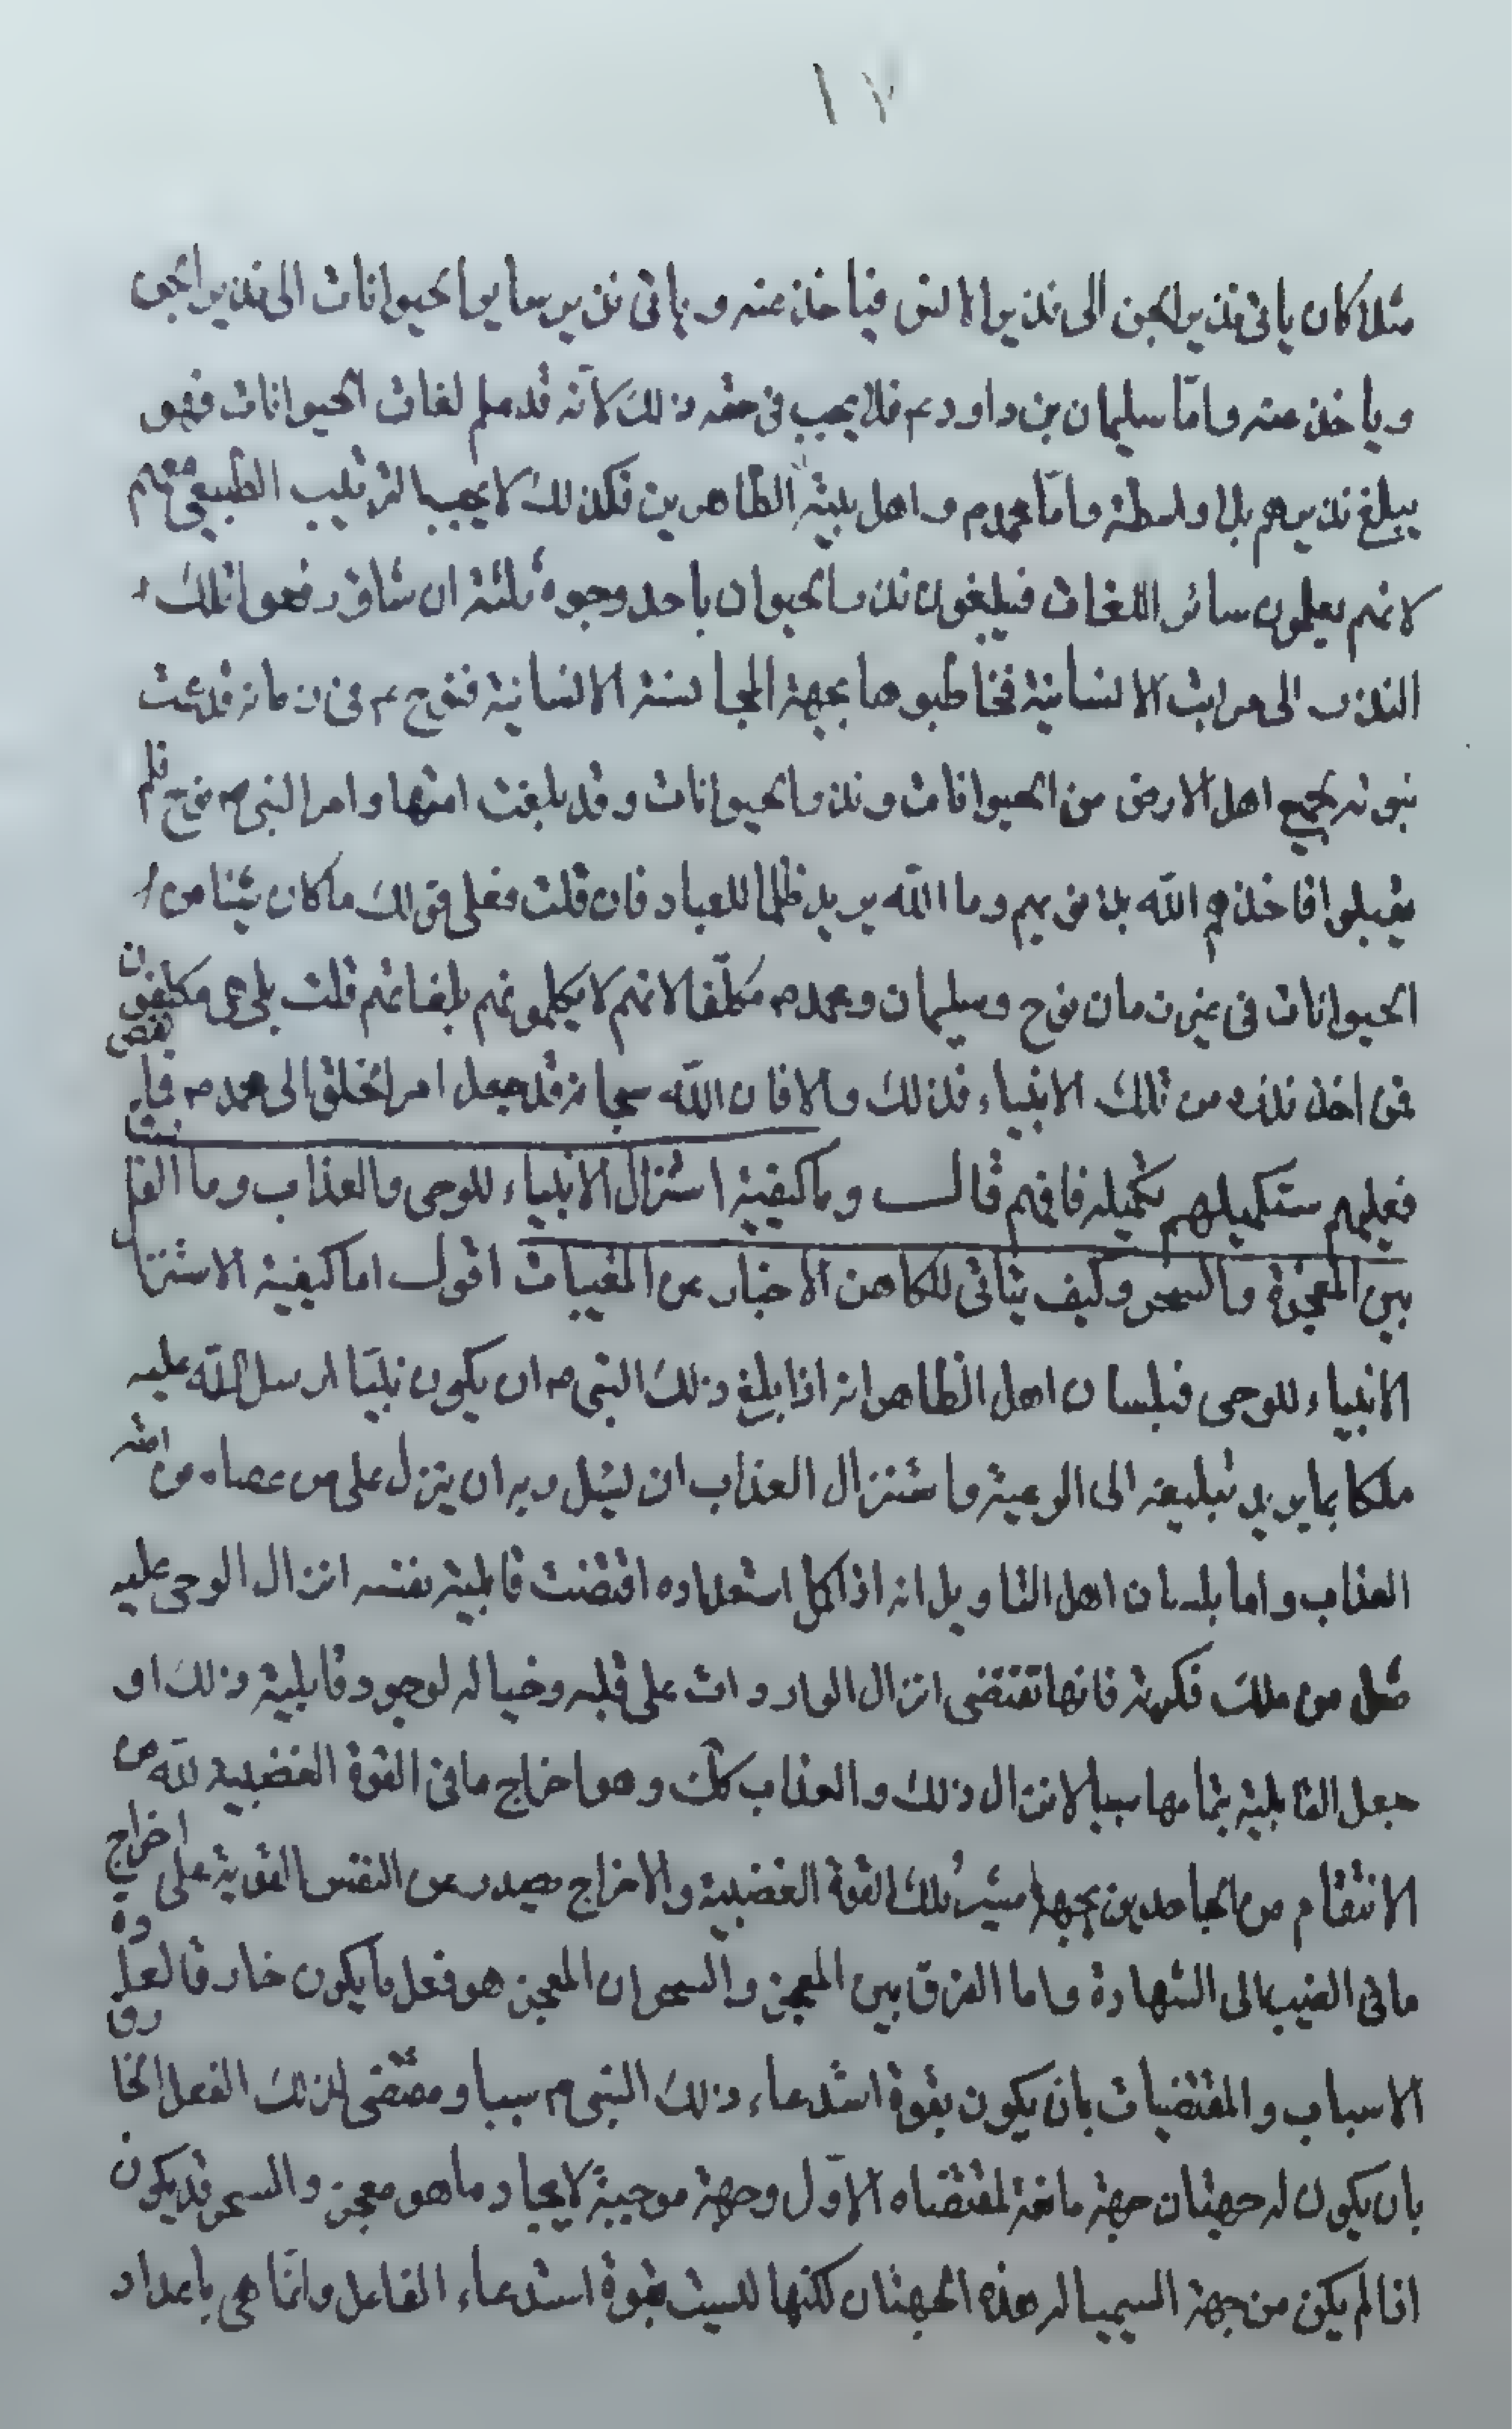 ١٧
مثلا كان ياتى نذير الجن الى نذير الانس فياخذ عنه و ياتى نذير ساير الحيوانات الى نذير الجن
وياخذ عنه و امّا سليمان بن داود ع فلا يجب فى حقه ذلك لانّه قد علم لغات الحيوانات فهو
يبلغ نذيرهم بلا واسطة و امّا محمد ص و اهل بيته الطاهرين فكذلك لا يجب الترتيب الطبيعى معهم
لانهم يعلمون سائر اللغات فيبلغون نذر الحيوان باحد وجوه ثلثة ان شاؤ رفعوا تلك
النذر الى مراتب الانسانية فخاطبوها بجهة المجانسة الانسانية فنوح ع فى زمانه قد عمت
نبوته لجميع اهل الارض من الحيوانات و نذر الحيوانات و قد بلغت امتها و امر النبى ص نوح فلم
يقبلوا فاخذهم الله بذنوبهم وما الله يريد ظلما للعباد فان قلت فعلى قولك ما كان شيئا من
الحيوانات فى غير زمان نوح وسليمان و محمد ص مكلّفا لانهم لا يكلمونهم بلغاتهم قلت بلى هى مكلفون
فمن اخذ نذره من تلك الانبياء فذلك والا فان الله سبحانه قد جعل امر الخلق الى محمد ص فاى نقص
فعليهم ستكميلهم تكميله فافهم قال وما كيفية استنزال الانبياء للوحى والعذاب وما الفارق
بين المعجزة والسحر وكيف يتاتى للكاهن الاخبار عن المغيبات اقول اما كيفية الاستنزال
الانبياء للوحى فبلسان اهل الظاهر انه اذا بلغ ذلك النبى ص ان يكون نبيّا ارسل الله عليه
ملكا بما يريد تبليغه الى الرعية واستنزال العذاب ان يسئل ربه ان ينزل على من عصاه من امته
العذاب و اما بلسان اهل التاويل انه اذا كمل استعداده اقتضت قابلية نفسه انزال الوحى عليه
مثل من ملك فكرته فانها تقتضى انزال الواردات على قلبه وخياله لوجود قابلية ذلك او
جعل القابلية بتمامها سببا لانزال ذلك والعذاب كك و هو اخراج ما فى القوة الغضبية لله من
الانتقام من الجاحدين بجهة تلك القوة الغضبية والاخراج يصدر عن النفس القوية على اخراج
ما فى الغيب الى الشهادة و اما الفرق بين المعجز والسحر ان المعجز هو فعل ما يكون خارقا لعادة
الاسباب والمقتضيات بان يكون بقوة استدعاء ذلك النبى ص سببا ومقتضى لذلك الفعل الخارق
بان يكون له جهتان جهة مانعة لمقتضاه الاوّل وجهة موجبة لايجاد ما هو معجز والسحر قد يكون
اذا لم يكن من جهة السيميا له هذه الجهتان لكنها ليست بقوة استدعاء الفاعل وانّما هى باعداد